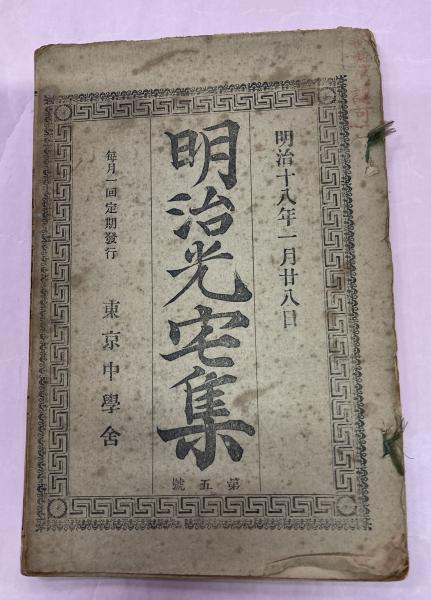 明治十八年一月廿八日
明治光宅集
第五號
每月一回定期發行
東京中學舍